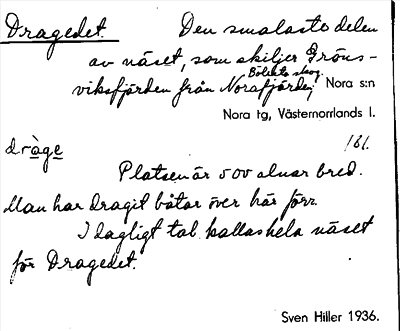 Dragedet. Den smalaste delen
av näset, som skiljer Gröns-
Bölesta skog.
viksfjärden från Norafjärden. Nora s:n
Nora tg, Västernorrlands l.
dràge 161.
Platsen är 500 alnar bred.
Man har dragit båtar över här förr.
I dagligt tal kallas hela näset
för Dragedet.
Sven Hiller 1936.